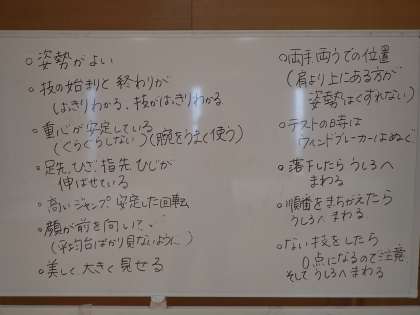 ○姿勢がよい
○技の始まりと終わりが
はっきりわかる、技がはっきりわかる
○重心が安定している
(ぐらぐらしない)(腕をうまく使う)
○足先、ひざ、指先、ひじが
伸ばせている
○高いジャンプ、安定した回転
○顔が前を向いてい
(平均台ばかり見ないように)
○美しく大きく見せる
○両手、両うでの位置
(肩より上にある方が
姿勢はくずれない)
○テストの時は
ウィンドブレーカーはぬぐ
○落下したらうしろへ
まわる
○順番をまちがえたら
うしろへまわる
○ない技をしたら
0点になるので注意
そしてうしろへまわる